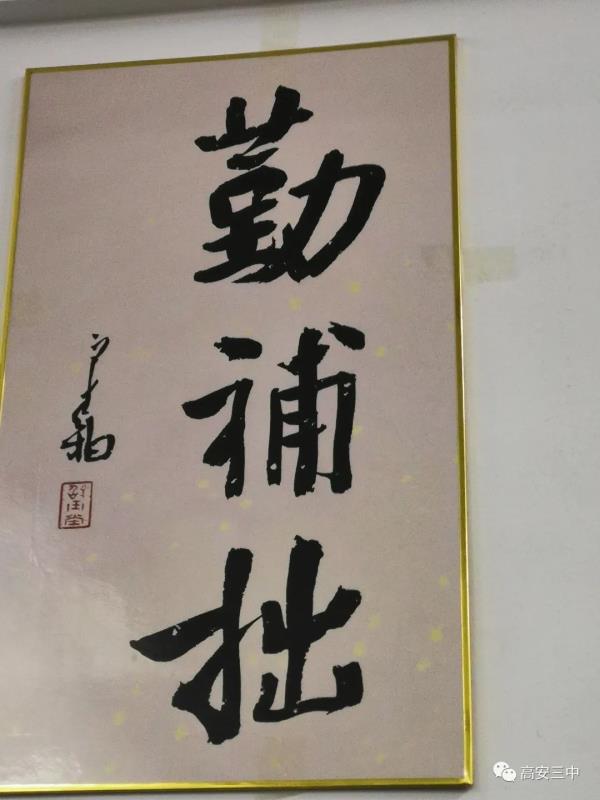 勤补拙
高安三中